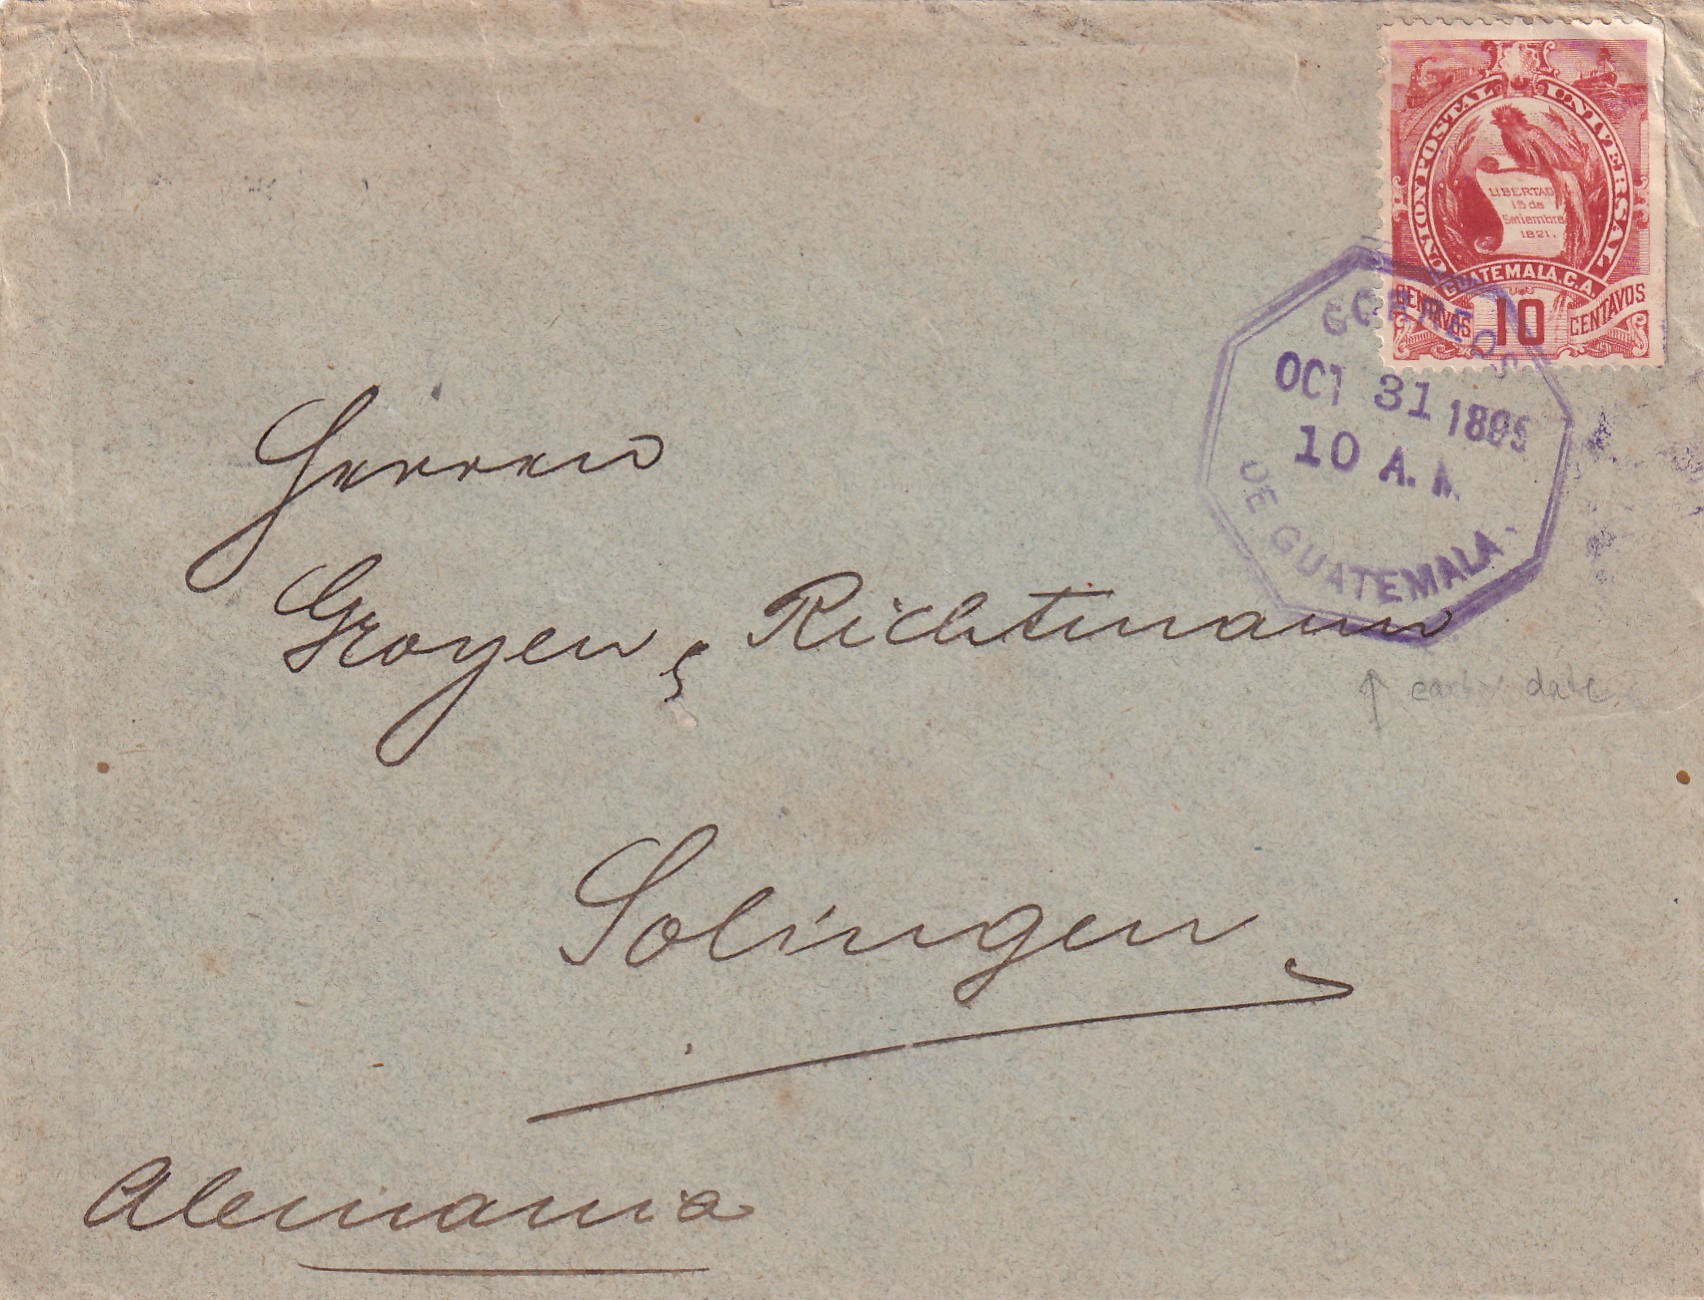 UNION POSTAL UNIVERSAL
LIBERTAD
15 de
Setiembre
1821.
GUATEMALA, C.A.
CENTAVOS 10 CENTAVOS
CORREOS
OCT 31 1895
10 A. M.
DE GUATEMALA
Herren
Groyen & Richtmann
date
Solingen
Alemania